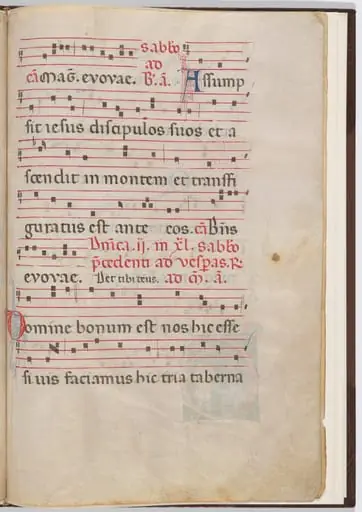 sabbō
ad
cā Mag̃. evovae. B̃. ā. Assump
sit iesus discipulos suos et a
scendit in montem et transfi
guratus est ante eos. cā Bñs
Dñica. ii. in xl. sabbō
p̄cedenti ad vesp̃as. R
evovae. Per tibi teus. ad m̃. ā.
Domine bonum est nos hic esse
si vis faciamus hic tria taberna